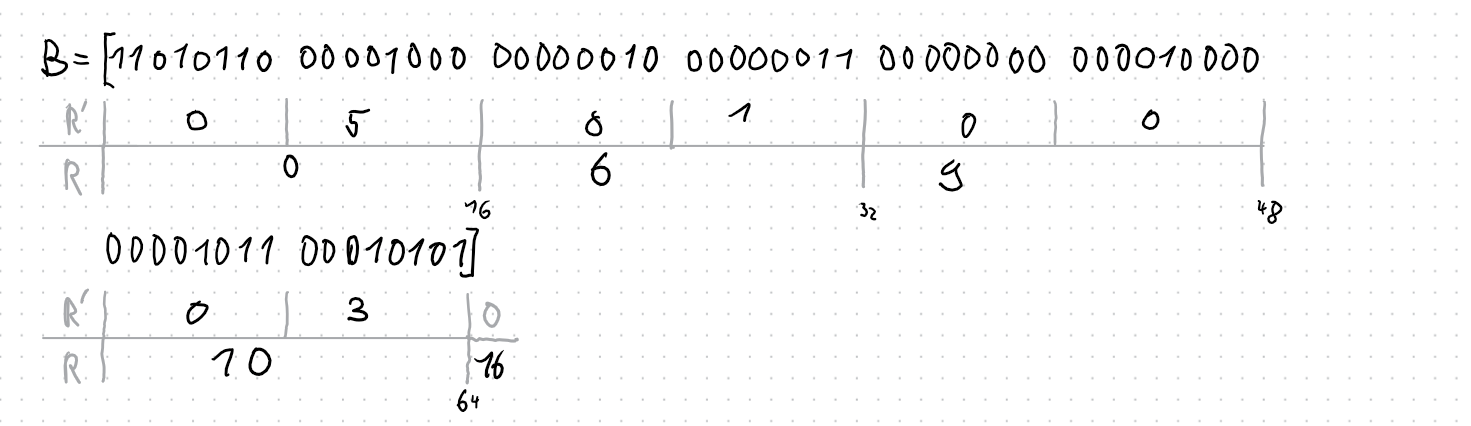 B=[11010110 00001000 00000010 00000011 00000000 000010000
R' 0 5 0 1 0 0
R 0 6 9
16 32 48
00001011 00010101]
R' 0 3 0
R 10 16
64